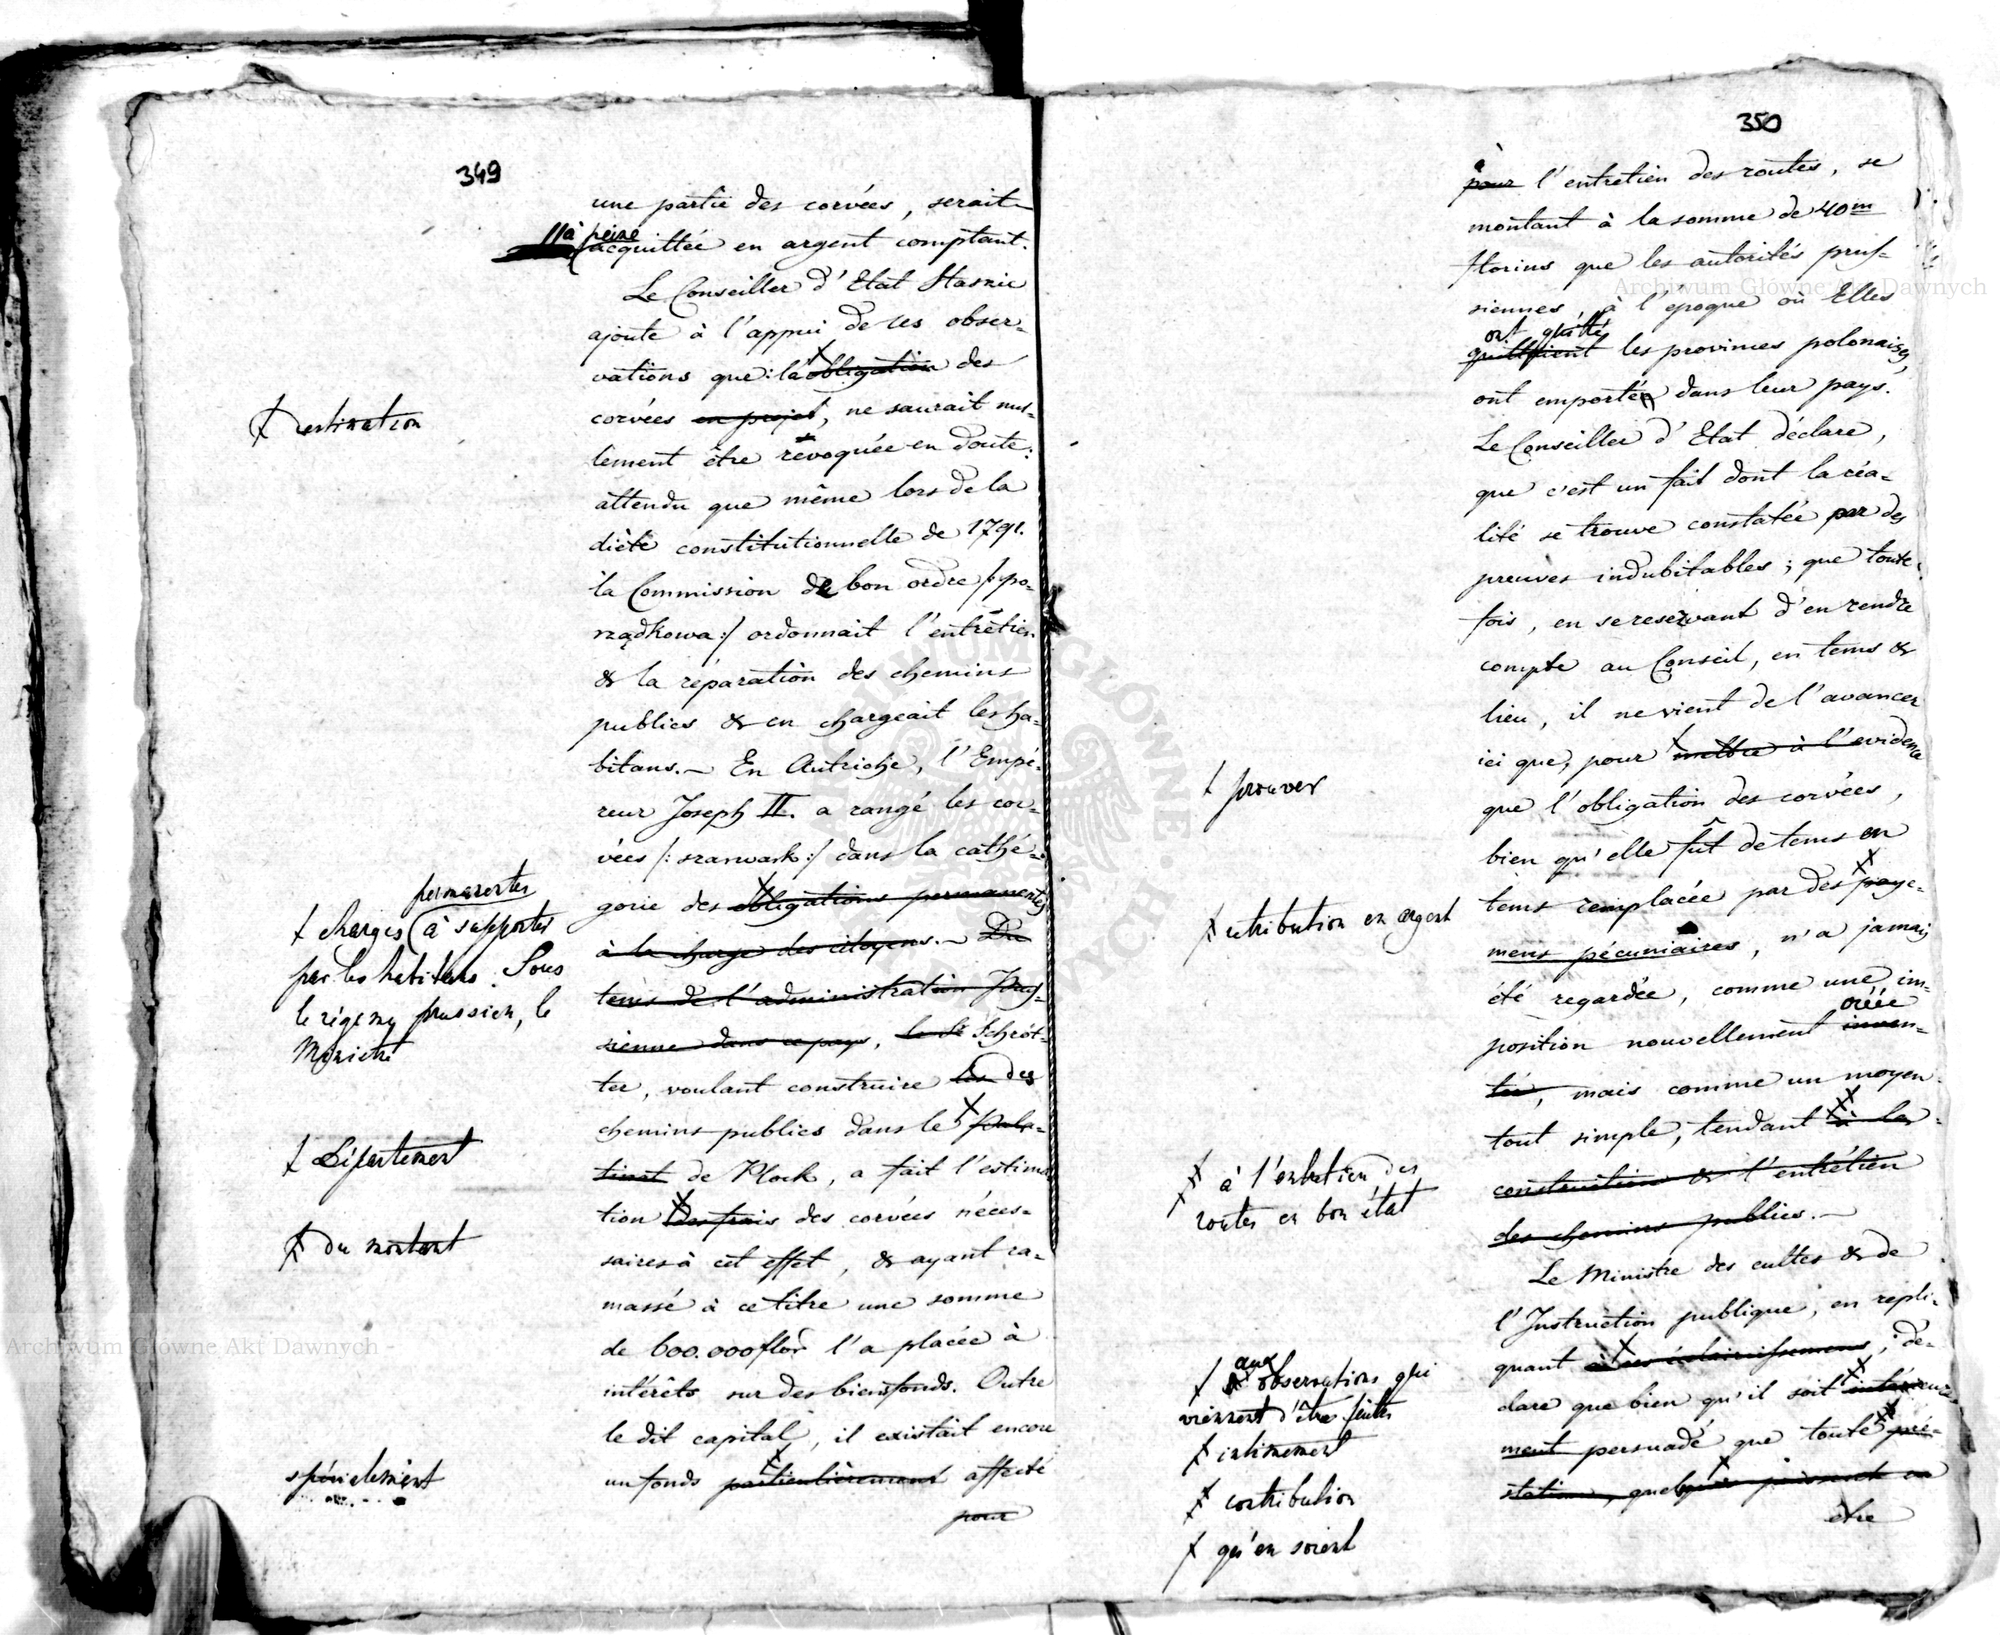 349
une partie des corvées, serait
à peine
acquittée en argent comptant.
Le Conseiller d'Etat Staszic
ajoute à l'appui de ces obser-
vations que: la obligation des
corvées en projet, ne saurait nul-
lement être révoquée en doute:
attendu que même lors de la
diète constitutionnelle de 1791.
la Commission de bon ordre /:po-
rządkowa:/ ordonnait l'entrêtien
& la réparation des chemins
publics & en chargeait les ha-
bitans.— En Autriche, l'Empé-
reur Joseph II. a rangé les cor-
vées /:szarwark:/ dans la cathé-
gorie des obligations permanentes
à la charge des citoyens.— Du
tems de l'administration Prus-
sienne dans ce pays, le Sr Schröt-
ter, voulant construire les des
chemins publics dans le Pala-
tinat de Plock, a fait l'estima
tion des frais des corvées néces-
saires à cet effet, & ayant ra-
massé à ce titre une somme
de 600.000 flor l'a placée à
intérêts sur des biensfonds. Outre
le dit capital, il existait encore
un fonds particulièrement affecté
pour
permanentes
charges (à supporter
par les habitans. Sous
le régime prussien, le
Ministre
Département
du montant
spécialement
350
à
pour l'entretien des routes, se
montant à la somme de 40m
florins que les autorités prus-
siennes, à l'époque où Elles
ont quitté
quittaient les provinces polonaises,
ont emportés dans leur pays.
Le Conseiller d'Etat déclare,
que c'est un fait dont la réa-
lité se trouve constatée par des
preuves indubitables; que toute
fois, en se reservant d'en rendre
compte au Conseil, en tems &
lieu, il ne vient de l'avancer
ici que, pour mettre à l'evidence
que l'obligation des corvées,
bien qu'elle fût de tems en
tems remplacée par des paye-
mens pécuniaires, n'a jamais
été regardée, comme une im-
créée
position nouvellement inven-
tée, mais comme un moyen
tout simple, tendant à la
construction & l'entrétien
des chemins publics.—
Le Ministre des cultes & de
l'Instruction publique, en repli-
quant à ces éclaircissemens, dé-
clare que bien qu'il soit intérieure
ment persuadé que toute pré-
station, quelque
être
prouver
rétribution en argent
à l'entretien des
routes en bon état
aux
observations qui
viennent d'être faites
intimement
contribution
qu'en soient